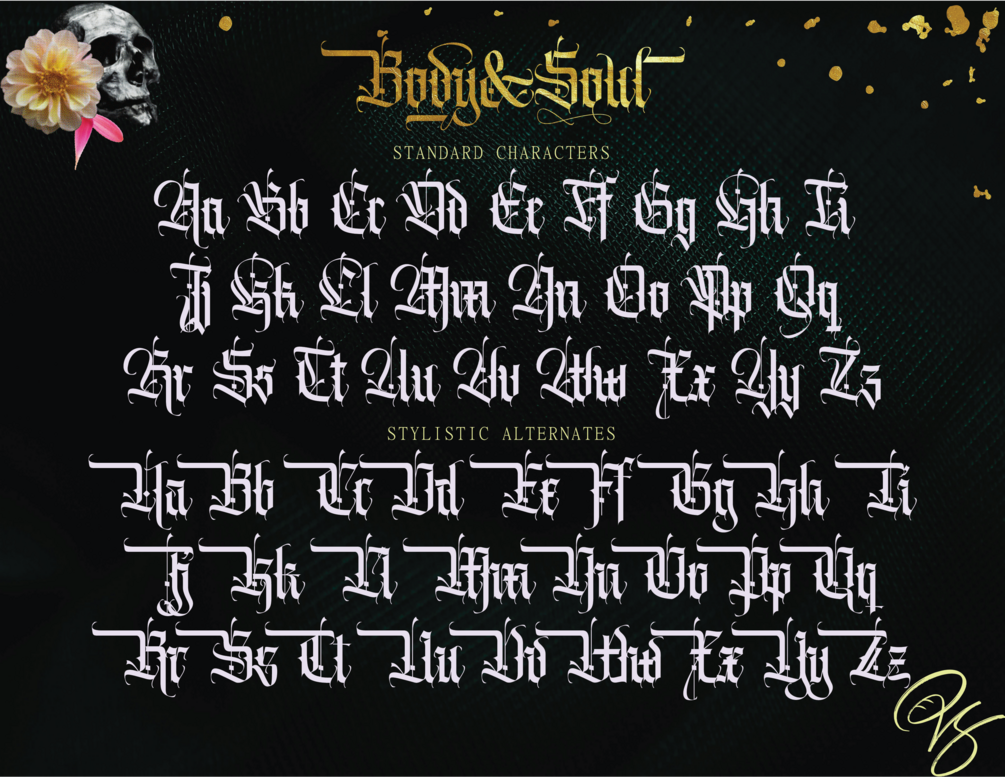 Body&Soul
STANDARD CHARACTERS
Aa Bb Cc Dd Ee Ff Gg Hh Ii
Jj Kk Ll Mm Nn Oo Pp Qq
Rr Ss Tt Uu Vv Ww Xx Yy Zz
STYLISTIC ALTERNATES
Aa Bb Cc Dd Ee Ff Gg Hh Ii
Jj Kk Ll Mm Nn Oo Pp Qq
Rr Ss Tt Uu Vv Ww Xx Yy Zz